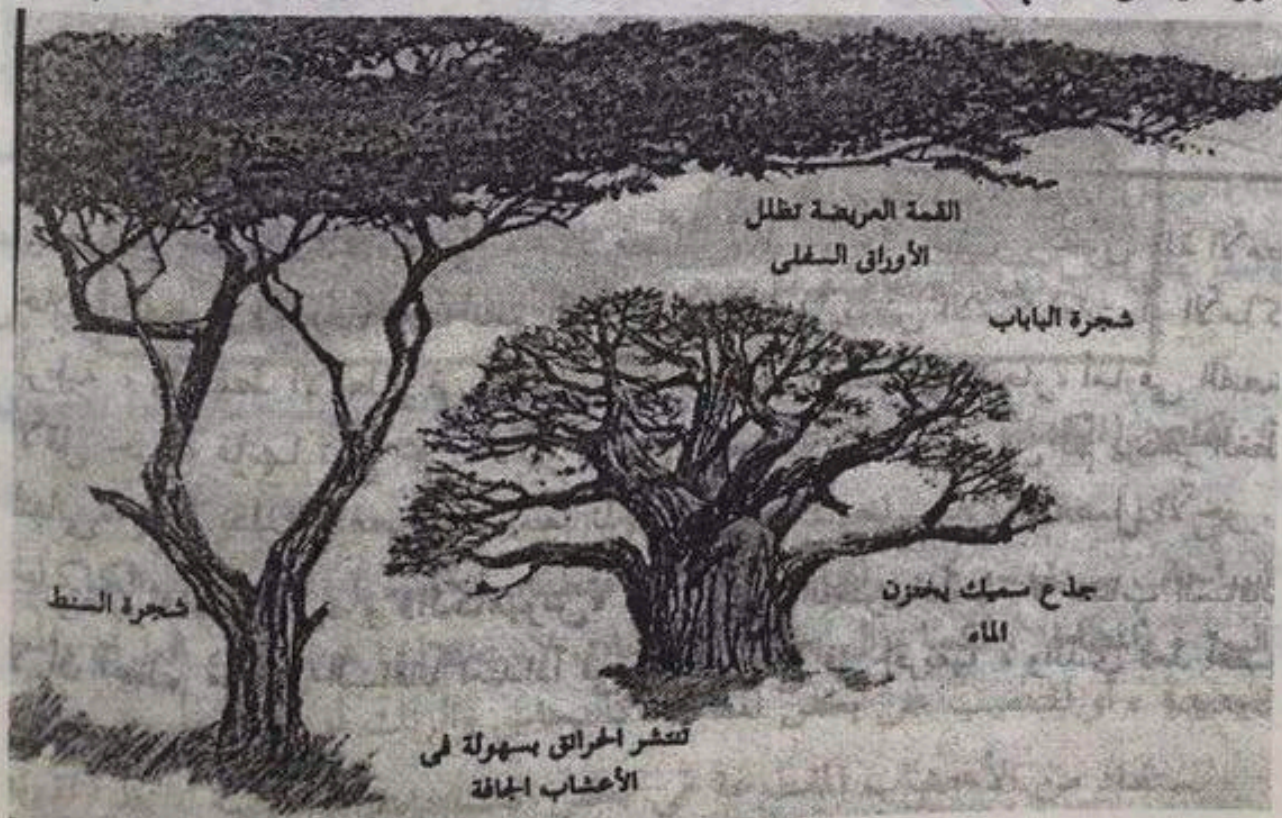 القمة العريضة تظلل
الأوراق السفلى
شجرة الباباب
جذع سميك يخزن
الماء
شجرة السنط
تنتشر الحرائق بسهولة فى
الأعشاب الجافة